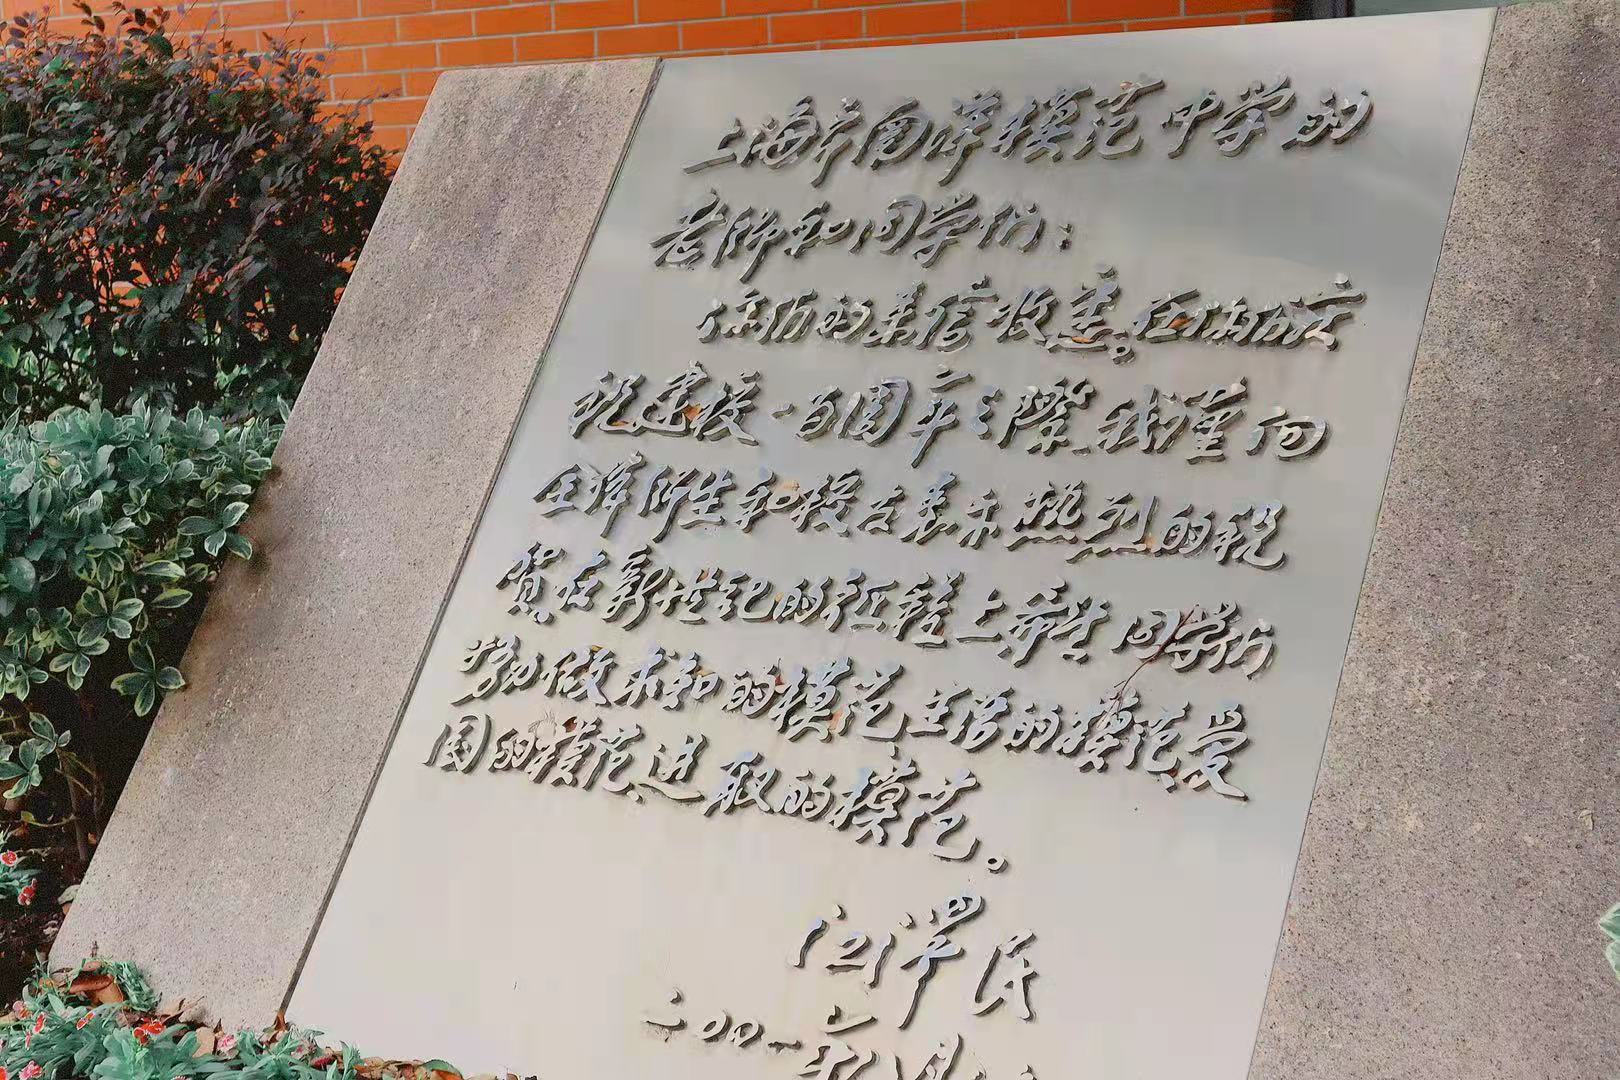 上海市南洋模范中学的
老师和同学们：
你们的来信收悉。在你们庆
祝建校一百周年之际，我谨向
全体师生和校友表示热烈的祝
贺。在新世纪的征程上，希望同学们
努力做求知的模范、生活的模范、爱
国的模范、进取的模范。
江泽民
二00一年八月